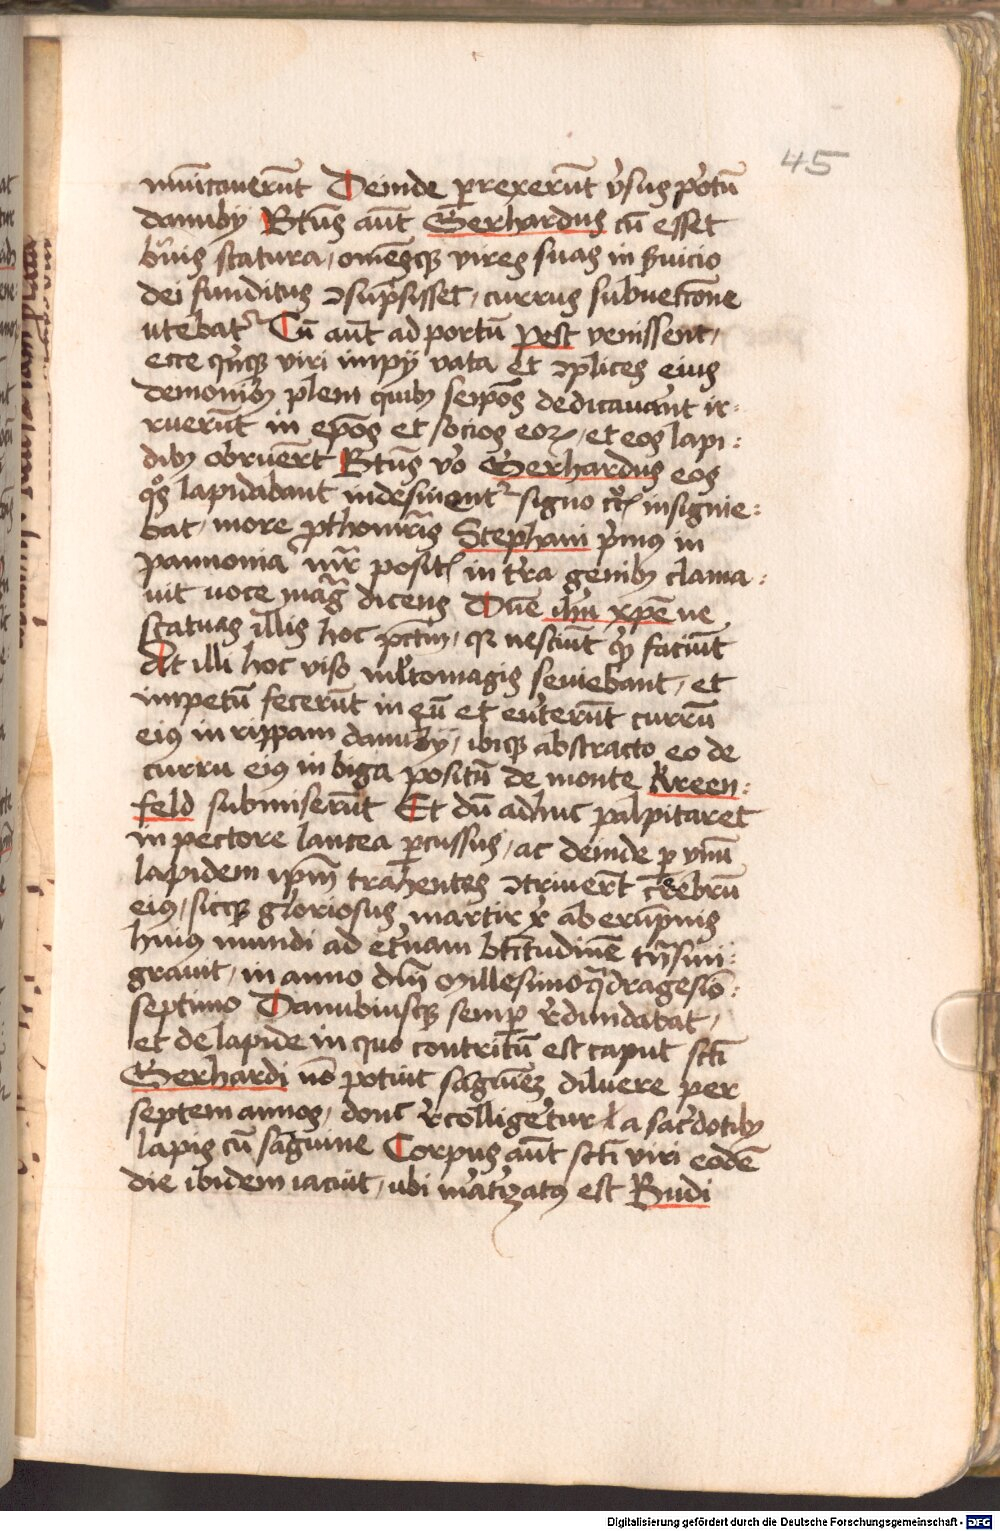 45
municauerūt Deinde perrexerūt v̓sus portū
danubij Btūs aūt Gerhardus cū esset
bͬuis statura, omesq̨ vires suas in s̓uicio
dei funditus ↄsūpsisset, currus subuectōne
utebatr̄ Cū aūt ad portū pest venissent,
ecce qͥnq̨ viri impij vata et ↄplices eius
demonibꝫ pleni quibꝫ seip̄os dedicauerant ir-
ruerūt in ep̄os et socios eoꝝ, et eos lapi:
dibꝫ obruerūt Btūs v̓o Gerhardus eos
qͦs lapidabant indesinentr̄ signo insignie:
bat, more ꝓthom̄ris Stephani pͥmꝰ in
pannonia mr̄ posit in tr̄a genibꝫ clama:
uit uoce mag̃ dicens Dn̄e ihū xp̄e ne
statuas illis hoc pctm̄, qꝛ nesciūt qͥd faciūt
At illi hoc viso ml̓tomagis seuiebant, et
impetū fecerūt in eū et eu̓terūt currū
eiꝰ in rippam danubij, ibiq̨ abstracto eo de
curru eiꝰ in biga positū de monte Kreen:
feld submiserūt Et dū adhuc palpitaret
in pectore lancea ꝑcussus, ac deinde ꝑ vnū
lapidem ip̄m trahentes ↄtriuerūt cerebrū
eiꝰ, sicq̨ gloriosus martir xͥ ab erūpnis
huiꝰ mundi ad et̓nam btītudinē tͣnsmi:
grauit, in anno dn̄j Millesimoqͣdragesīo:
septimo Danubiusq̨ semꝑ r̓dundabat,
et de lapide in quo contritū est caput sctī
Gerhardi nō potuit sāgͥuneꝫ diluere per
septem annos, donc r̓colligeretur a sac̓dotibꝫ
lapis cū sāguine Corpus aūt sctī viri eodē
die ibidem iacuit, ubi mͬatizatꝰ est Budi
Digitalisierung gefördert durch die Deutsche Forschungsgemeinschaft - DFG